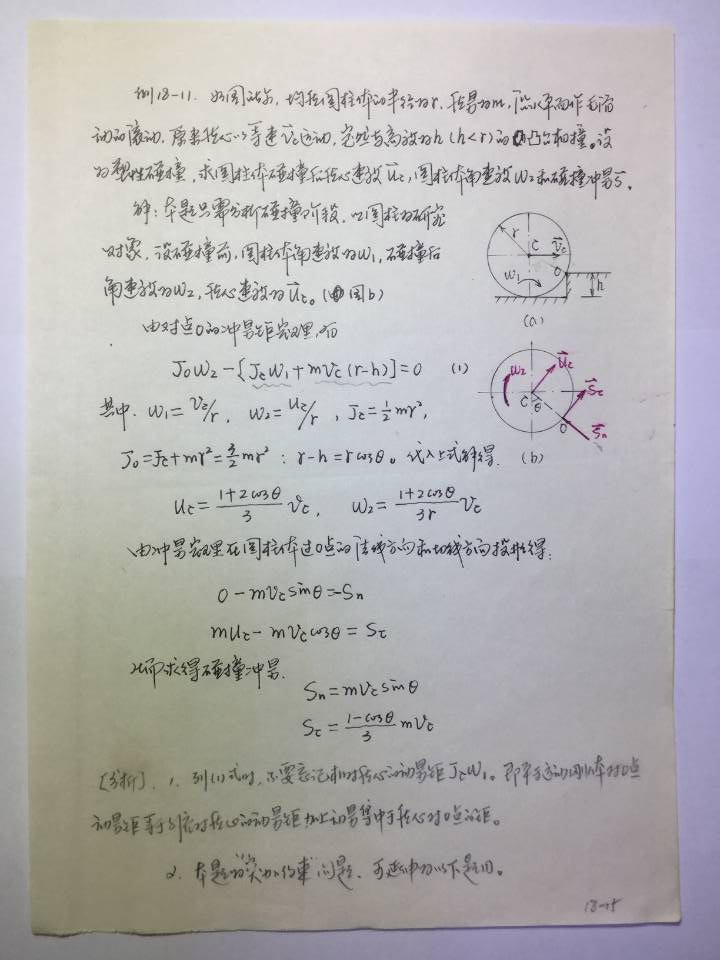 例18-11. 如图所示, 均质圆柱体的半径为r, 质量为m, 沿水平面作无滑
动的滚动, 原来质心以等速v̄c运动, 突然与高为h (h<r) 的凸台相撞。设
为塑性碰撞, 求圆柱体碰撞后质心速度ūc, 圆柱体角速度ω2和碰撞冲量s̄.
解: 本题只需分析碰撞阶段, 以圆柱为研究
对象, 设碰撞前, 圆柱体角速度为ω1, 碰撞后
角速度为ω2, 质心速度为ūc。(图b)
由对点O的冲量矩定理, 有
JOω2-[Jcω1+mvc(r-h)]=0 (1)
其中. ω1=vc/r, ω2=uc/r, Jc=1/2mr²,
JO=Jc+mr²=3/2mr²; r-h=rcosθ。代入上式解得.
uc=(1+2cosθ)/3 vc, ω2=(1+2cosθ)/3r vc
由冲量定理在圆柱体过O点的法线方向和切线方向投影得:
0-mvcsinθ=-Sn
muc-mvccosθ=Sτ
从而求得碰撞冲量.
Sn=mvcsinθ
Sτ=(1-cosθ)/3 mvc
[分析]. 1. 列(1)式时, 不要忘记相对质心的动量矩Jcω1。即平面运动刚体对O点
动量矩等于刚体对质心的动量矩加上动量集中于质心对O点的矩。
2. 本题为"突加约束"问题, 可延伸为以下题目。
r
C
v̄c
O
ω1
h
(a)
ω2
ūc
S̄τ
C
θ
O
S̄n
(b)
18-15